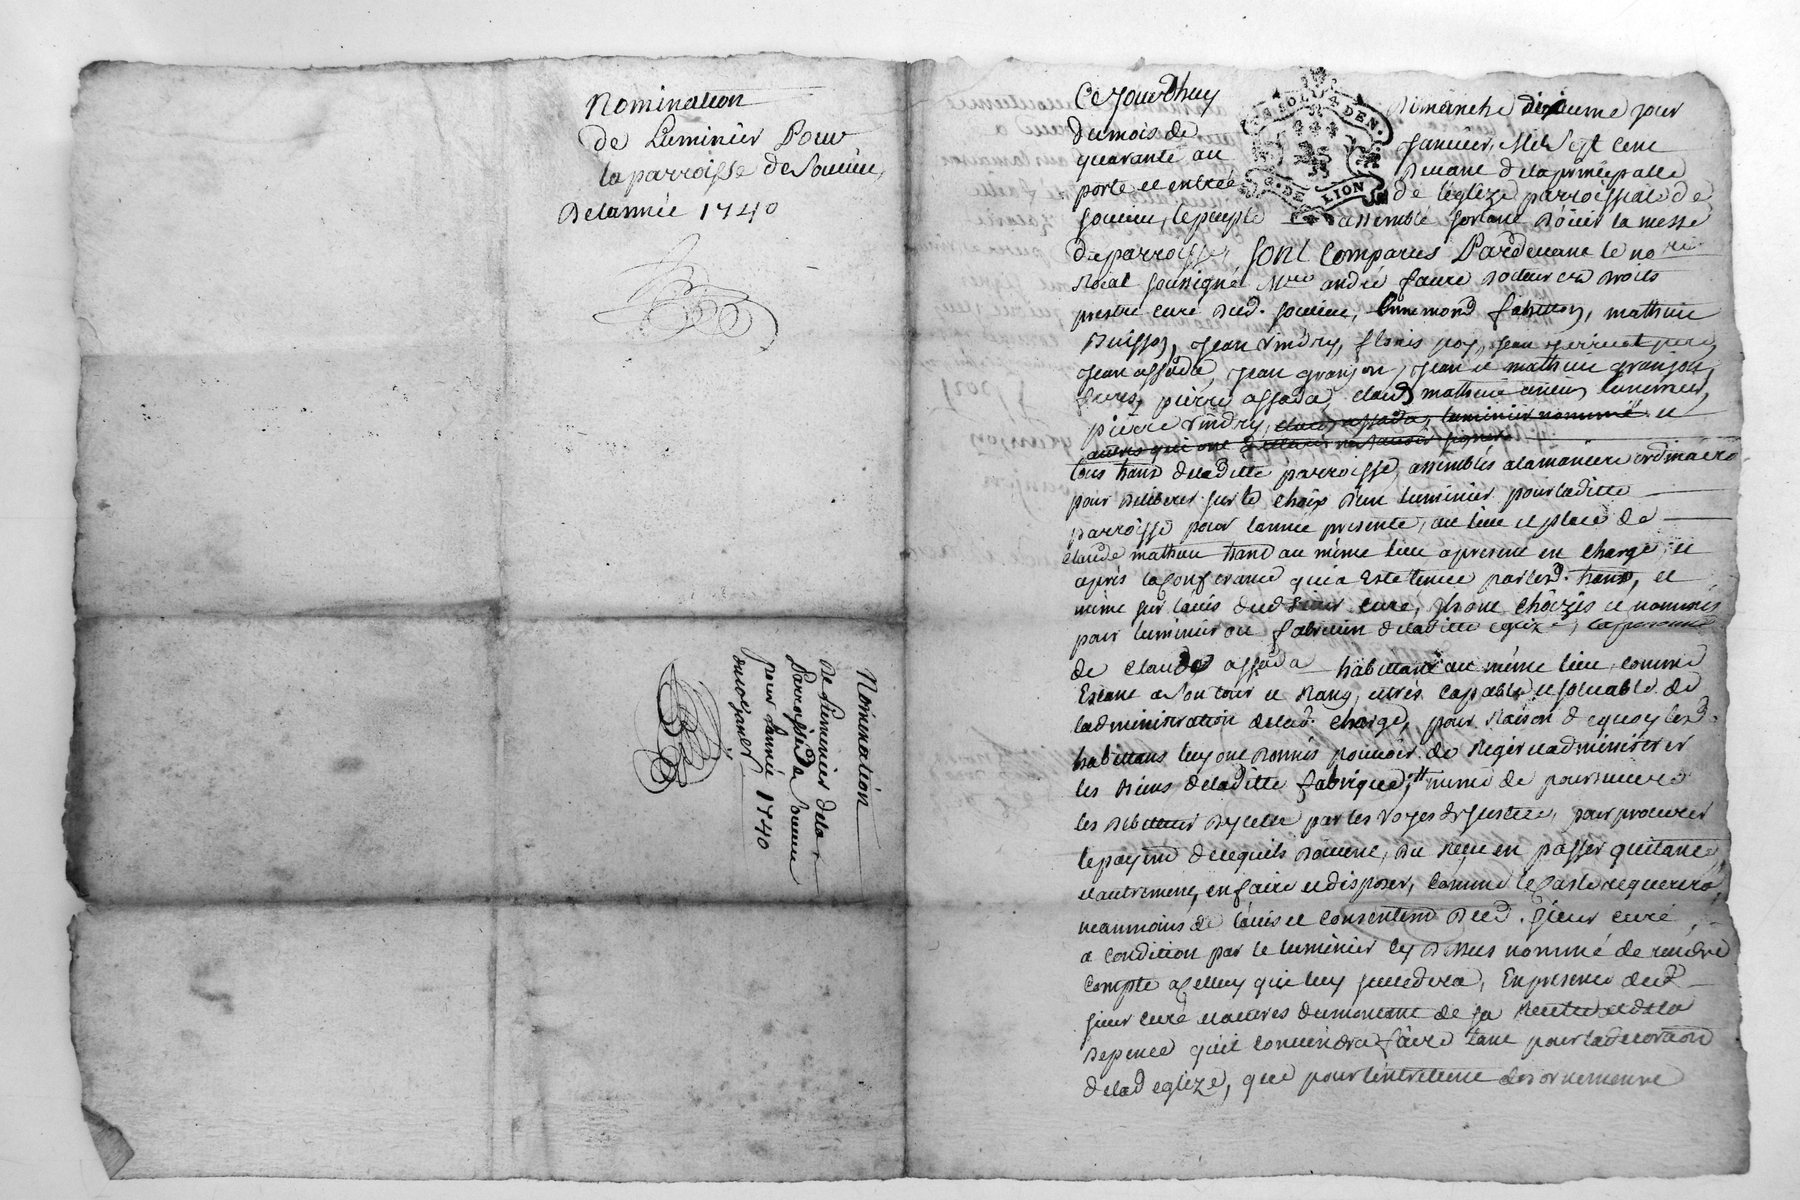 Nomination
de Luminier Pour
la parroisse de Soucieu
De lannée 1740
Nomination
De Luminier dela
Parroisse de Soucieu
pour Lannée 1740
du 10e janvier
Ce jourdhuy Dimanche dixieme jour
du mois de Janvier Mil sept cent
quarante au Devant de la principalle
porte et entrée de léglize parroissiale de
Soucieu, le peuple assemblé sortant d'oüir la messe
de parroisse, sont comparus Pardevant le nore
Roial soussigné Mre andré faure docteur en droits
prestre curé dud. Soucieu, Ennemond
mathieu
Buisson, Jean Vindry, pere,
Jean assada, Jean granjon, Jean et mathieu granjon
freres, pierre assada, claude mathieu luminier,
pierre Vindry, claude assada, luminier nommé et
autres qui ont déclaré ne scavoir signer
tous hans de laditte parroisse, assemblés a la maniere ordinaire
pour deliberer sur le choix d'un luminier pour laditte
parroisse pour lannée presente, au lieu et place de
claude mathieu hant au même lieu a present en charge et
après la conferance qui a esté tenue par lesd. hans, et
même sur lavis dud sieur curé, ils ont choizis et nommés
pour luminier ou fabricien de laditte eglize, la personne
de claude assada habitant au même lieu, comme
Estant a son tour et Rang, et tres capable et solvable de
ladministration de lad. charge, pour Raison de quoy lesd.
habittans luy ont donnés pouvoir de Regir et administrer
les Biens de laditte fabrique, même de poursuivre
les debiteurs d'ycelle par les voyes de justice, pour procurer
le payemt de ce quils doivent, du Reçu en passer quittance,
et autrement, en faire et disposer, comme le cas le requerera,
neanmoins de lavis et consentemt dud. sieur curé,
a condition par le luminier cy dessus nommé de rendre
compte a celluy qui luy succedera, En presence dud.
sieur curé et autres du montant de sa Recette et de la
depence quil conviendra faire tant pour la decoration
de lad eglize, que pour lentretient des ornements